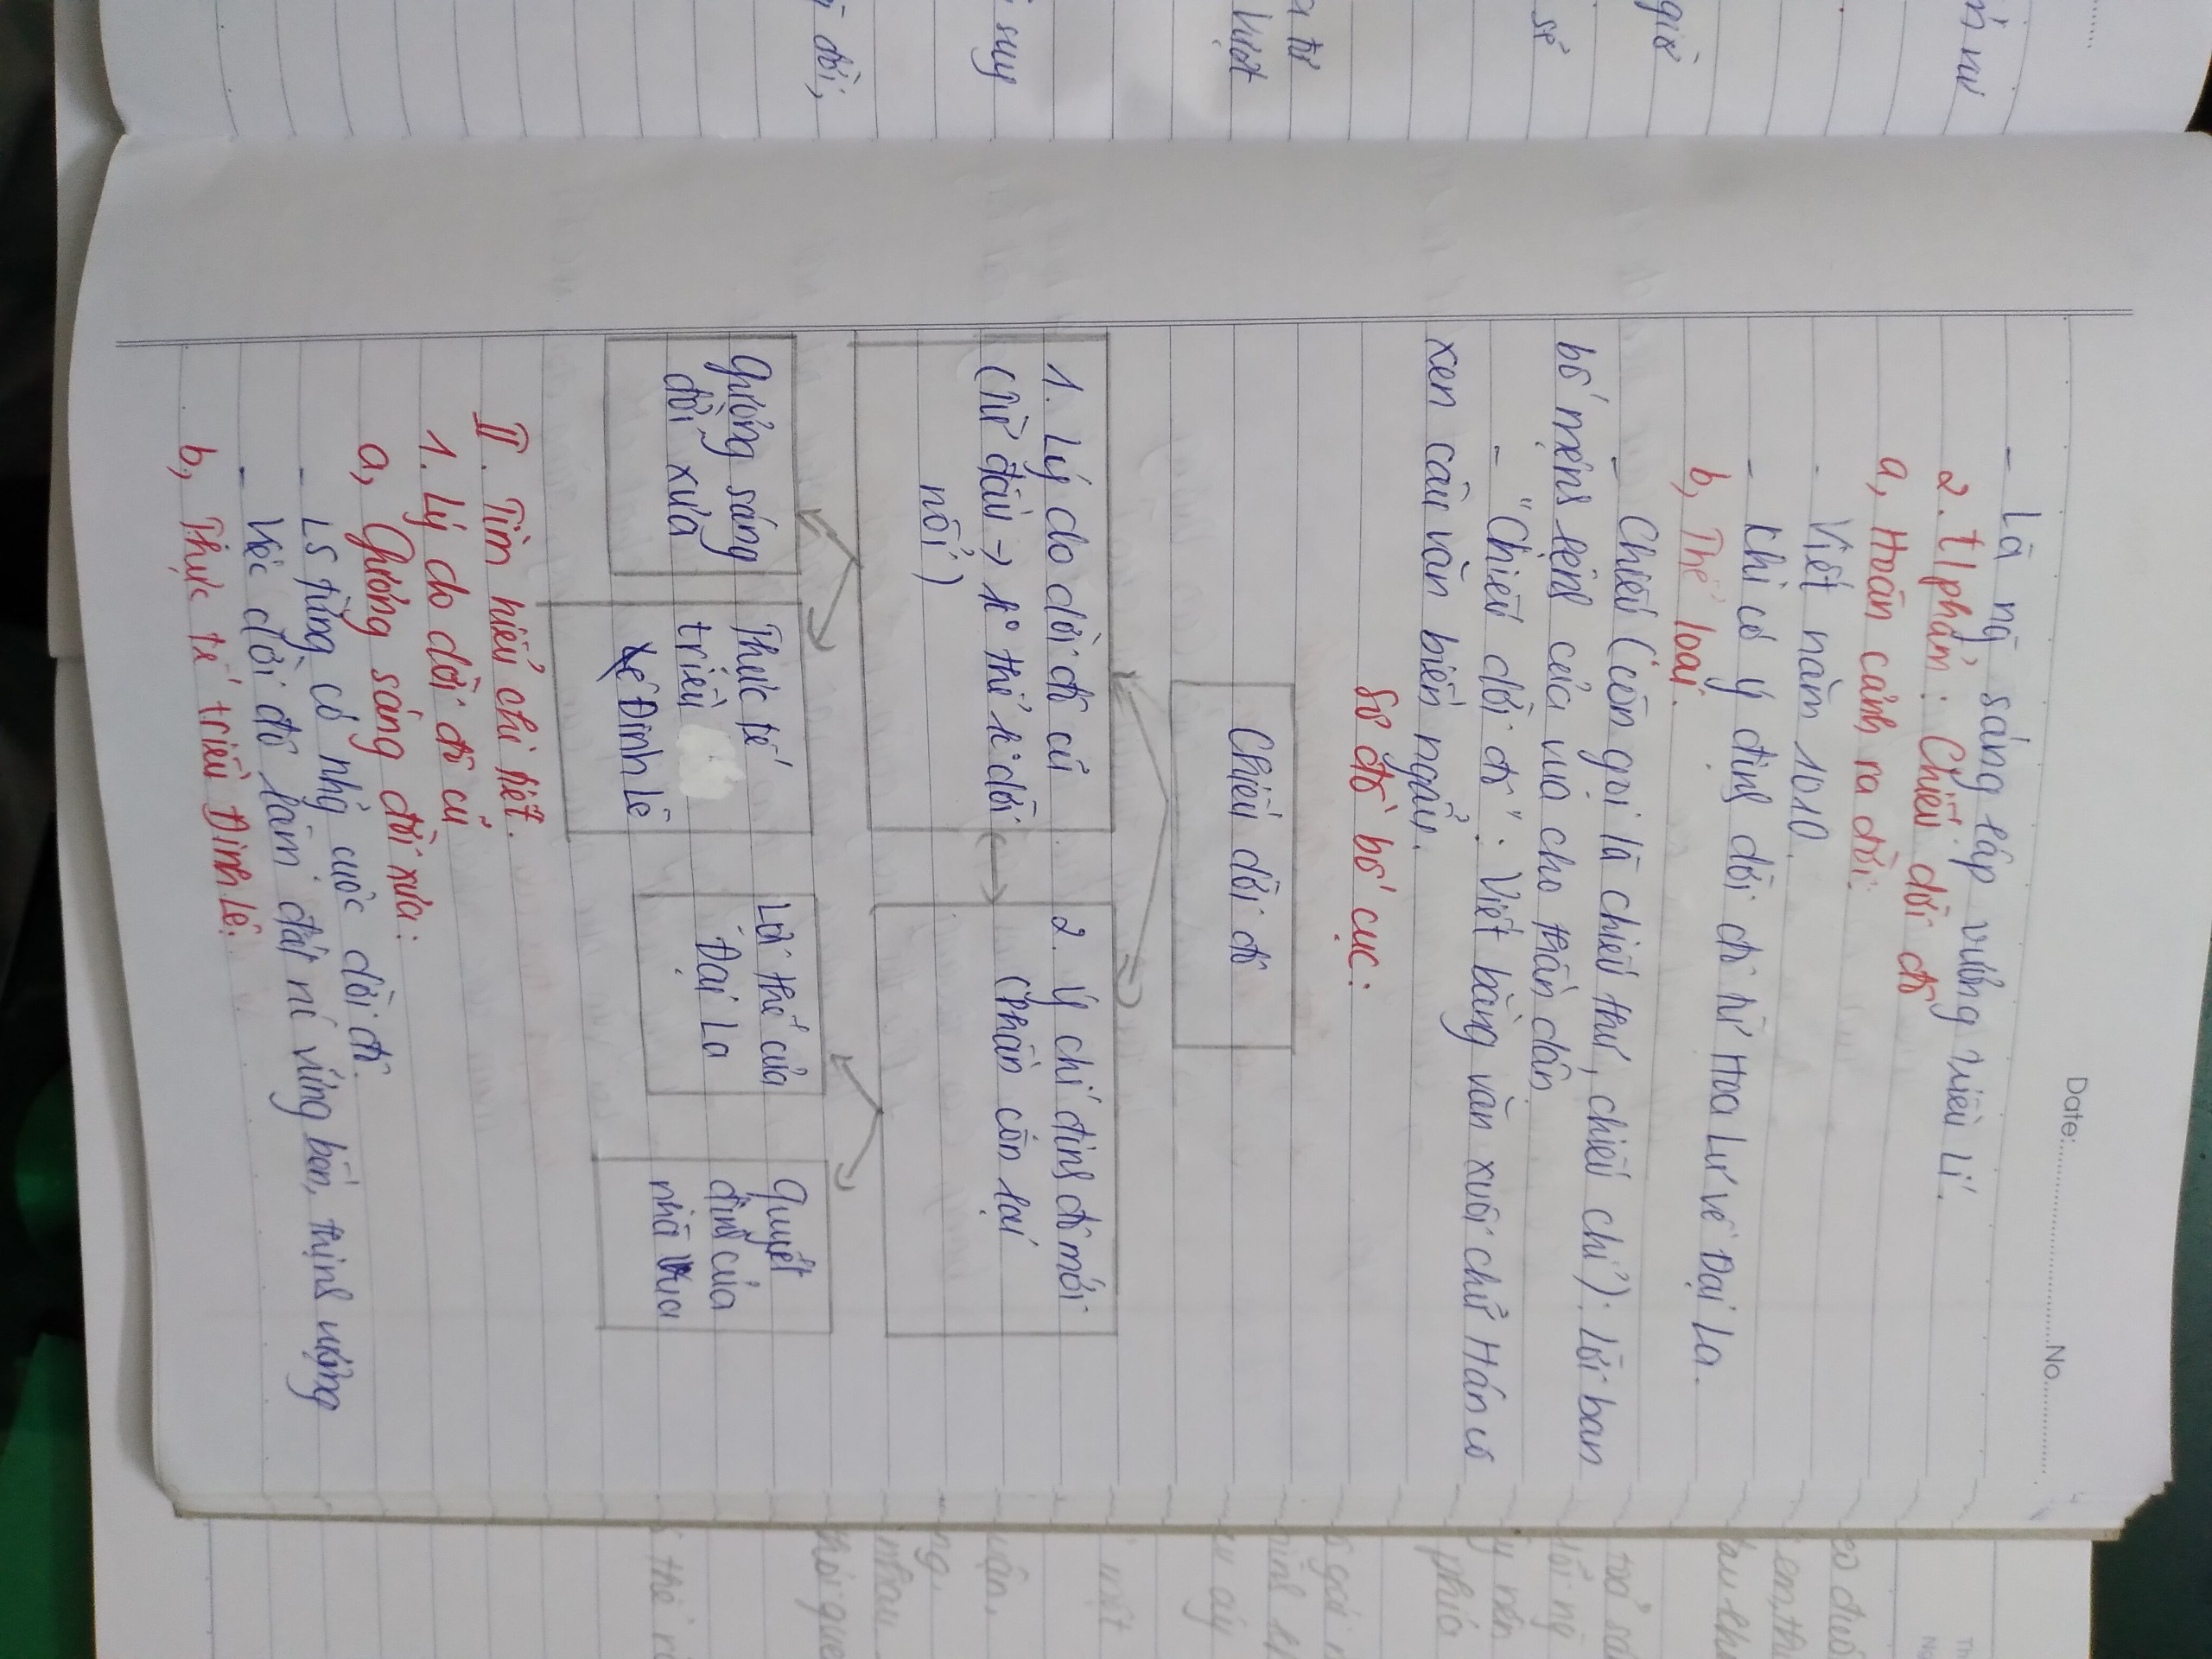 Date: No
- Là ng̃ sáng lập vương triều Lí.
2. T/phẩm: Chiếu dời đô
a, Hoàn cảnh ra đời:
- Viết năm 1010.
- Khi có ý định dời đô từ Hoa Lư về Đại La.
b, Thể loại.
- Chiếu (còn gọi là chiếu thư, chiếu chỉ): Lời ban
bố mệnh lệnh của vua cho thần dân.
- "Chiếu dời đô": Viết bằng văn xuôi chữ Hán có
xen câu văn biền ngẫu.
Sơ đồ bố cục:
Chiếu dời đô
1. Lý do dời đô cũ
(Từ đầu → k° thể k° dời
nổi)
2. Ý chí định đô mới
(Phần còn lại
Gương sáng
đời xưa
Thực tế
triều
Đinh Lê
Lợi thế của
Đại La
Quyết
định của
nhà vua
II. Tìm hiểu chi tiết.
1. Lý do dời đô cũ
a, Gương sáng đời xưa:
- LS từng có nhg̃ cuộc dời đô.
- Việc dời đô làm đất nc vững bền, thịnh vượng
b, Thực tế triều Đinh Lê:
giờ
sẻ
a từ
Vượt
suy
đời,
em, thư
phía
một
nhau